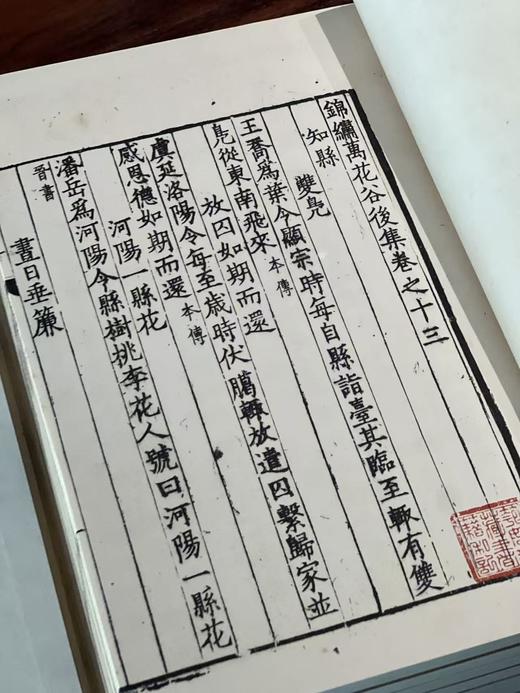 錦繡萬花谷後集卷之十三
知縣
雙鳧
王喬爲葉令顯宗時每自縣詣臺其臨至輙有雙
鳧從東南飛來本傳
放囚如期而還
虞延洛陽令每至歲時伏臈輙放遣囚繫歸家並
感恩德如期而還本傳
河陽一縣花
潘岳爲河陽令縣樹桃李花人號曰河陽一縣花
晉書
晝日垂簾